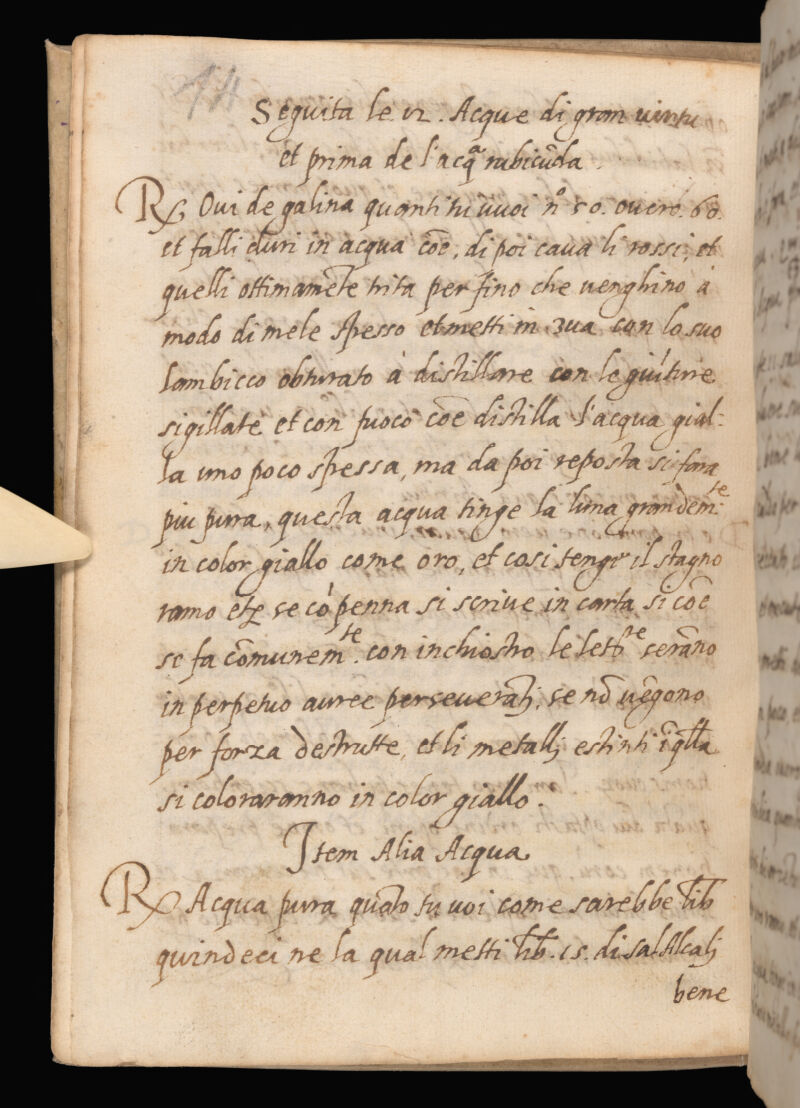 14
Seguita le 12. Acque di gran uirtu
et prima de l'acqª rubicūda.
℞ Oui de galina quanti tu uuoi nº 50. ouero. 60.
et falli duri in acqua cōe, di poi caua li rossi, et
quelli ottimamēte trita per fino che uenghino à
modo di mele spesso et metti in zua con lo suo
lambicco obturato à distillare con le giūture
sigillate et con fuoco cōe distilla l'acqua gial-
la uno poco spessa, ma da poi reposta si fara
piu pura, questa acqua tinge la luna grandem.te
in color giallo come oro, et cosi tenge il stagno
ramo etc se cō penna si scriue in carta si cōe
se fa cōmunem.te con inchiostro le lettre serāno
in perpetuo auree perseuerātj, se nō uēgono
per forza destrutte, et li metallj estinti ī q̄lla
si coloraranno in color giallo.
Item Alia Acqua
℞ Acqua pura quāto tu uoi come sarebbe lib
quindeci ne la qual metti lib. 15. di sal Alcalj
bene